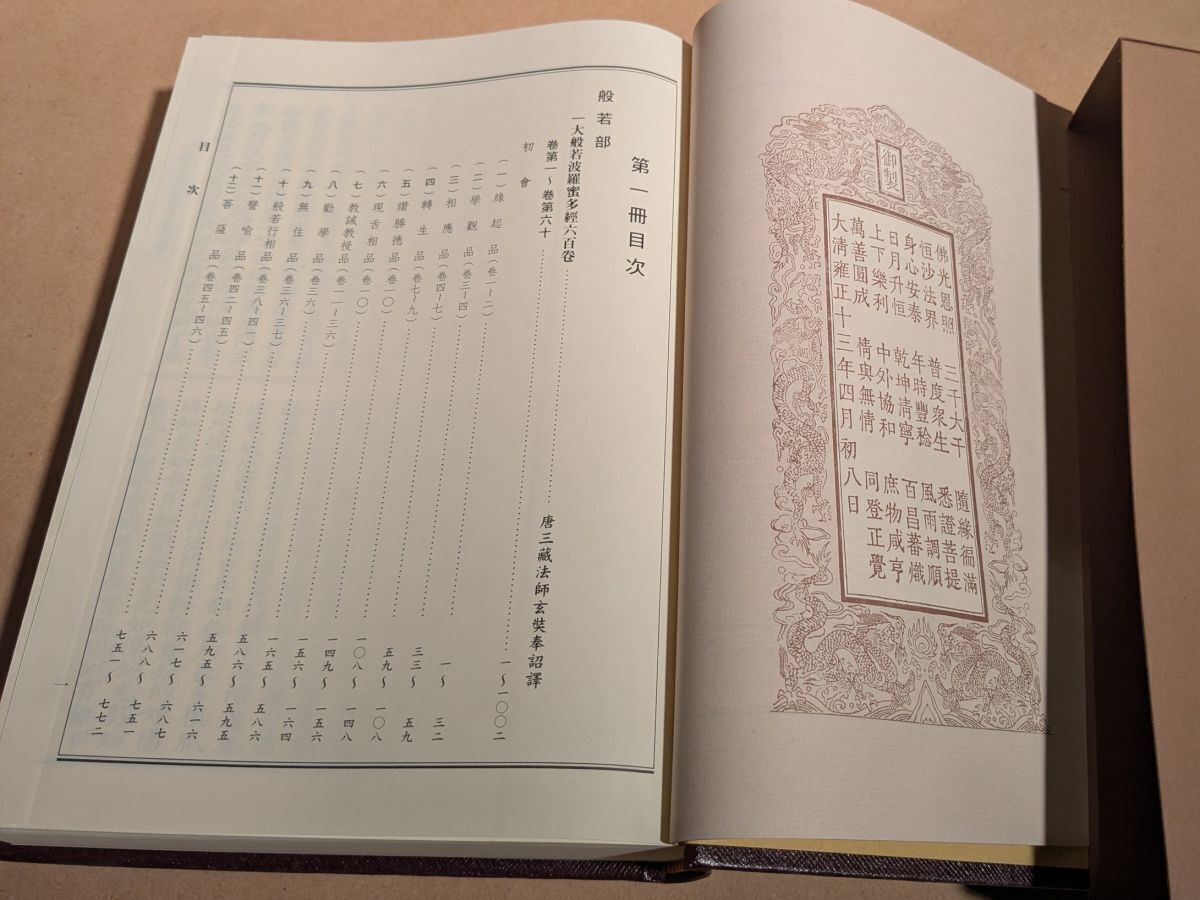 御製
佛光恩照 三千大千 隨緣徧滿
恒沙法界 普度衆生 悉證菩提
身心安泰 年時豐稔 風雨調順
日月升恒 乾坤清寧 百昌蕃熾
上下樂利 中外協和 庶物咸亨
萬善圓成 情與無情 同登正覺
大清雍正十三年四月初八日
第一冊目次
般若部
一大般若波羅蜜多經六百卷……唐三藏法師玄奘奉詔譯
卷第一～卷第六十……一～一〇〇二
初會
(一)緣起品(卷一～二)……一～三二
(二)學觀品(卷三～四)……三三～五九
(三)相應品(卷四～七)……五九～一〇八
(四)轉生品(卷七～九)……一〇八～一四八
(五)讚勝德品(卷一〇)……一四九～一五六
(六)現舌相品(卷一〇)……一五六～一六四
(七)教誡教授品(卷一一～三六)……一六五～五八六
(八)勸學品(卷三六)……五八六～五九五
(九)無住品(卷三六～三七)……五九五～六一六
(十)般若行相品(卷三八～四一)……六一七～六八七
(十一)譬喻品(卷四二～四五)……六八八～七五一
(十二)菩薩品(卷四五～四六)……七五一～七七二
目次
一